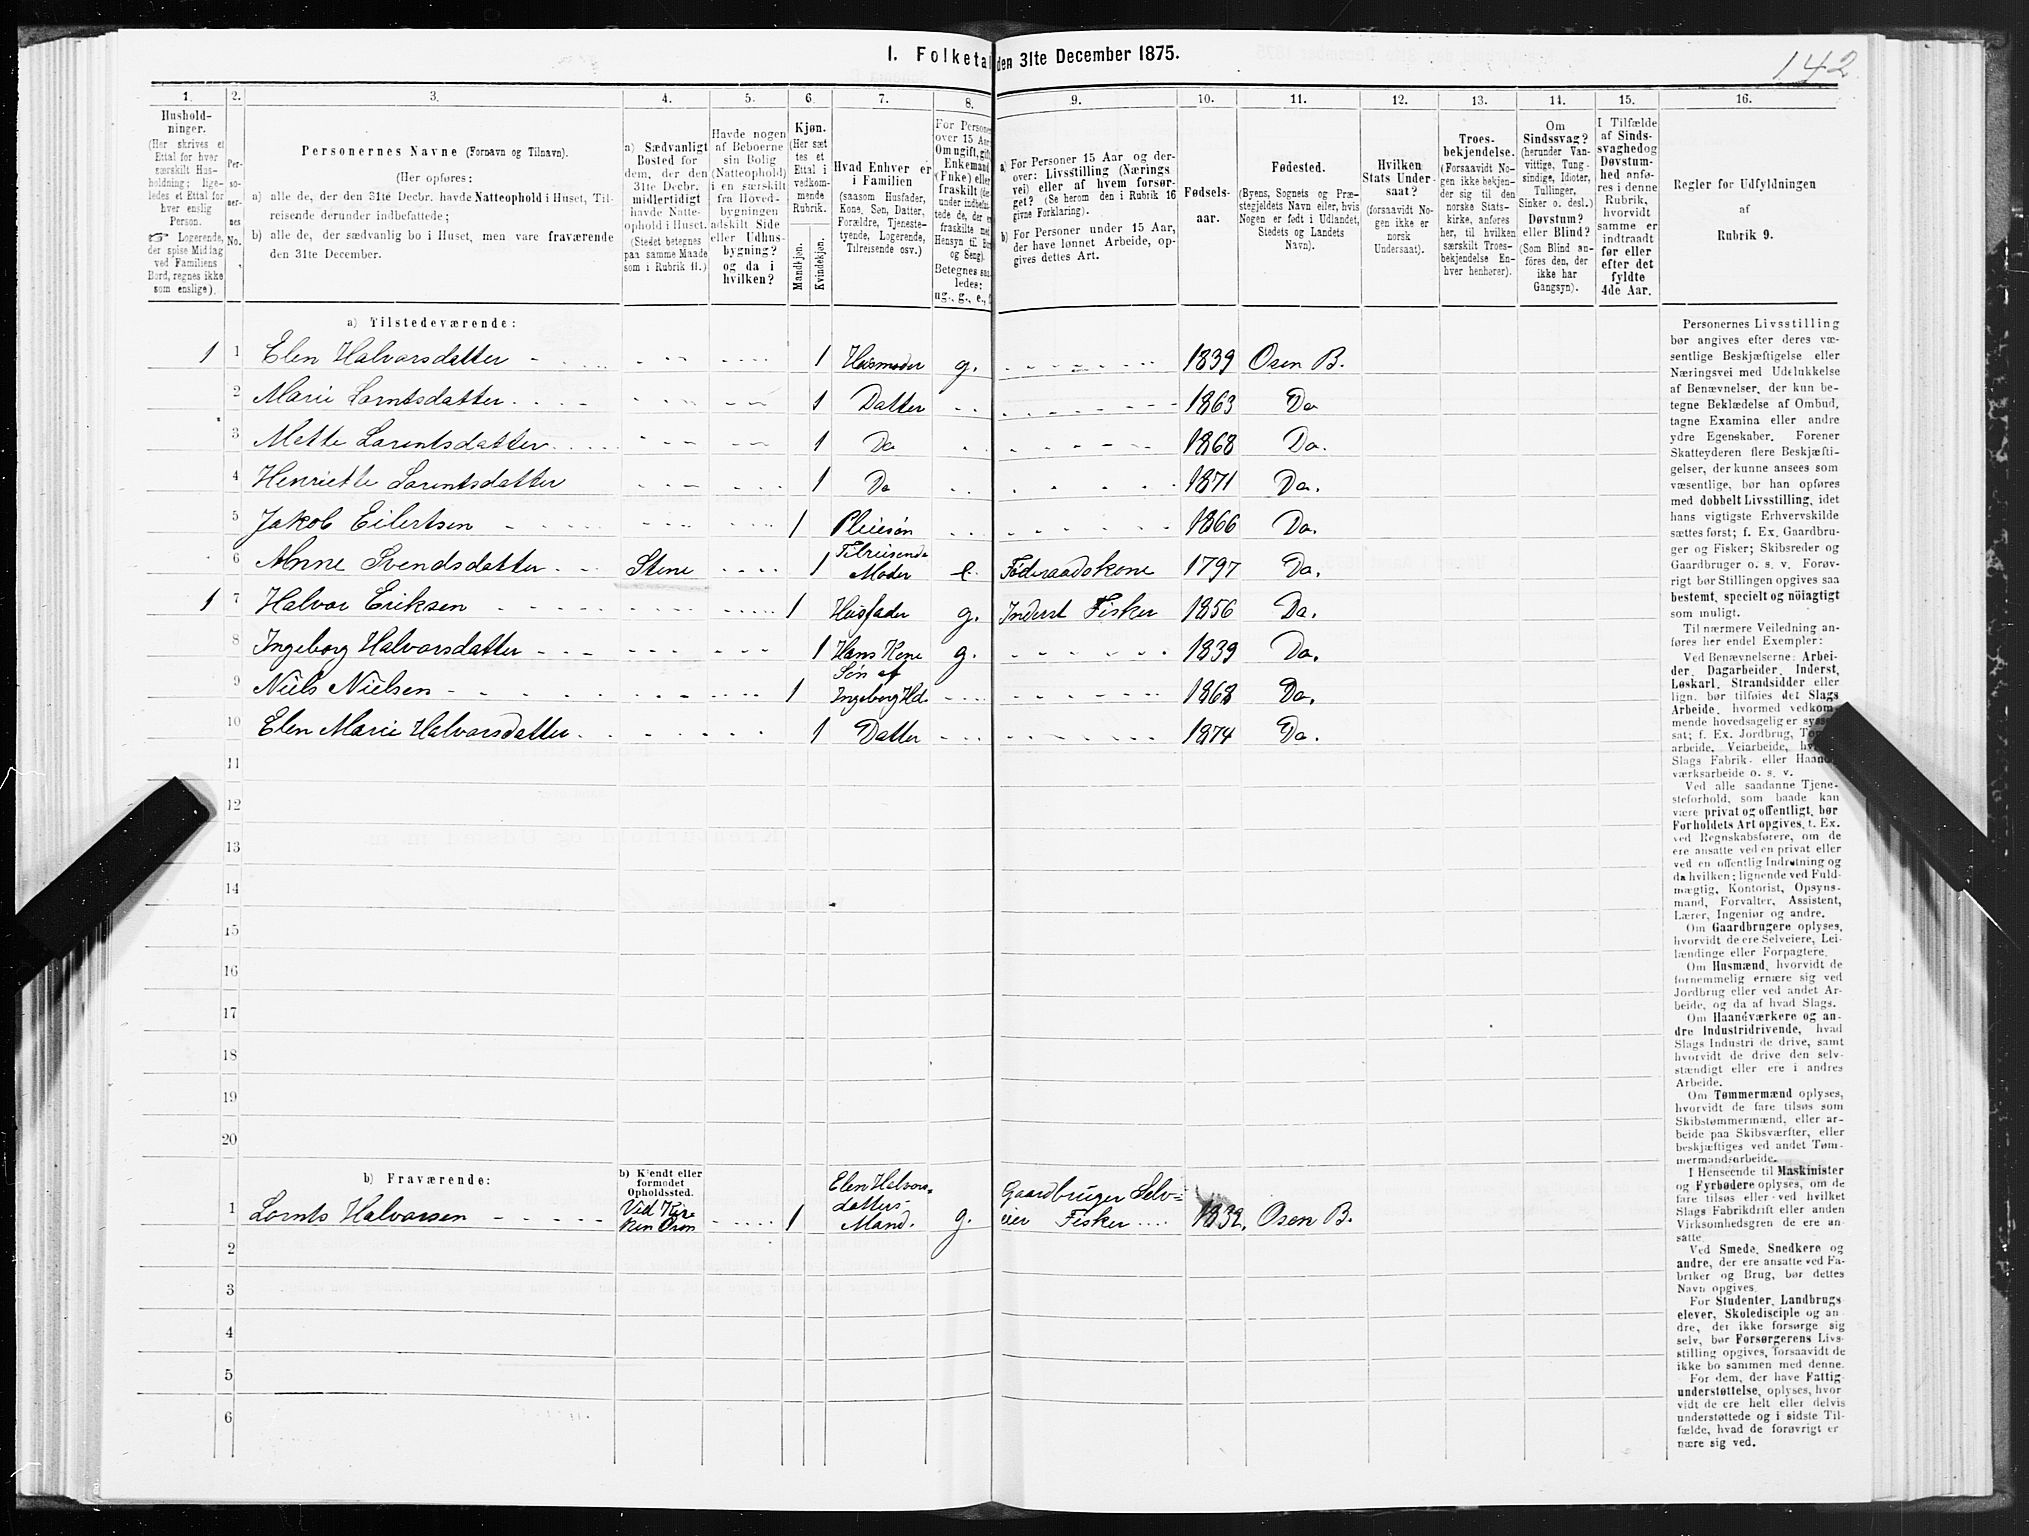 I. Folketal den 31te December 1875.
142
1. 2. 3. 4. 5. 6. 7. 8. 9. 10. 11. 12. 13. 14. 15. 16.
Hushold-
ninger.
(Her skrives et
Ettal for hver
særskilt Hus-
holdning; lige-
ledes et Ettal for
hver enslig
Person.
☞ Logerende,
der spise Middag
ved Familiens
Bord, regnes ikke
som enslige).
Per-
so-
ner-
nes
No.
Personernes Navne (Fornavn og Tilnavn).
(Her opføres:
a) alle de, der den 31te Decbr. havde Natteophold i Huset, Til-
reisende derunder indbefattede;
b) alle de, der sædvanlig bo i Huset, men vare fraværende
den 31te December.
a) Sædvanligt
Bosted for
dem, der den
31te Decbr.
midlertidigt
havde Natte-
ophold i Huset.
(Stedet betegnes
paa samme Maade
som i Rubrik 11.)
Havde nogen
af Beboerne
sin Bolig
(Natteophold)
i en særskilt
fra Hoved-
bygningen
adskilt Side
eller Udhus-
bygning?
og da i
hvilken?
Kjøn.
(Her sæt
tes et
Ettal i
vedkom-
mende
Rubrik.
Mandkjøn.
Kvindekjøn.
Hvad Enhver er
i Familien
(saasom Husfader,
Kone, Søn, Datter,
Forældre, Tjeneste-
tyende, Logerende,
Tilreisende osv.)
For Persone
over 15 Aar
Om ugift, gift
Enkemand
(Enke) eller
fraskilt (der-
under indbefat-
tede de, der er
fraskilte med
Hensyn til Bo
og Seng).
Betegnes saa-
ledes:
ug., g., e.,
a) For Personer 15 Aar og der-
over: Livsstilling (Nærings
vei) eller af hvem forsør-
get? (Se herom den i Rubrik 16
givne Forklaring).
b) For Personer under 15 Aar,
der have lønnet Arbeide, op-
gives dettes Art.
Fødsels-
aar.
Fødested.
(Byens, Sognets og Præ-
stegjeldets Navn eller, hvis
Nogen er født i Udlandet,
Stedets og Landets
Navn).
Hvilken
Stats Under-
saat?
(forsaavidt No-
gen ikke er
norsk
Undersaat).
Troes-
bekjendelse.
(Forsaavidt No-
gen ikke bekjen-
der sig til den
norske Stats-
kirke, anføres
her, til hvilken
særskilt Troes-
bekjendelse En-
hver henhører).
Om
Sindssvag?
(herunder Van-
vittige, Tung-
sindige, Idioter,
Tullinger,
Sinker o. desl.)
Døvstum?
eller Blind?
(Som Blind an-
føres den, der
ikke har
Gangsyn).
I Tilfælde
af Sinds-
svaghed og
Døvstum-
hed anfø-
res i denne
Rubrik,
hvorvidt
samme er
indtraadt
før eller
efter det
fyldte
4de Aar.
Regler for Udfyldningen
af
Rubrik 9.
a) Tilstedeværende:
1 1 Elen Halvorsdatter 1 Husmoder g. 1839 Osen B.
2 Marie Lorntsdatter 1 Datter 1863 Do
3 Mette Lorentsdatter 1 Do 1868 Do.
4 Henriette Lorentsdatter 1 Do 1871 Do.
5 Jakob Eilertsen 1 Pleiesøn 1866 Do.
6 Anne Svendsdatter Stene 1 Tilreisende
Moder e. Føderaadskone 1797 Do.
1 7 Halvor Eriksen 1 Husfader g. Inderst Fisker 1856 Do.
8 Ingeborg Halvorsdatter 1 Hans Kone g. 1839 Do.
9 Niels Nielsen 1 Søn af
Ingeborg Hd. 1868 Do.
10 Elen Marie Halvorsdatter 1 Datter 1874 Do.
11
12
13
14
15
16
17
18
19
20
b) Fraværende:
b) Kjendt eller
formodet
Opholdssted.
1 Lornts Halvorsen Vid 1 Elen Halvors-
datters
Mand. g. Gaardbruger Selv-
eier Fisker 1832. Osen B.
2
3
4
5
6
Personernes Livsstilling
bør angives efter deres væ-
sentlige Beskjæftigelse eller
Næringsvei med Udelukkelse
af Benævnelser, der kun be-
tegne Beklædelse af Ombud,
tagne Examina eller andre
ydre Egenskaber. Forener
Skatteyderen flere Beskjæfti-
gelser, der kunne ansees som
væsentlige, bør han opføres
med dobbelt Livsstilling, idet
hans vigtigste Erhvervskilde
sættes først; f. Ex. Gaardbru-
ger og Fisker; Skibsreder og
Gaardbruger o. s. v. Forøv-
rigt bør Stillingen opgives saa
bestemt, specielt og nöiagtigt
som muligt.
Til nærmere Veiledning an-
føres her endel Exempler:
Ved Benævnelserne: Arbei-
der, Dagarbeider, Inderst,
Løskarl, Strandsidder eller
lign. bør tilføies det Slags
Arbeide, hvormed vedkom-
mende hovedsagelig er syssel-
sat; f. Ex. Jordbrug,
arbeide, Veiarbeide,
Slags Fabrik- eller Haand-
værksarbeide o. s. v.
Ved alle saadanne Tjene-
steforhold, som baade kan
være privat og offentligt, bør
Forholdets Art opgives, t. Ex.
ved Regnskabsførere, om de
ere ansatte ved en privat eller
ved en offentlig Indretning og
da hvilken; lignende ved Fuld-
mægtig, Kontorist, Opsyns-
mand, Forvalter, Assistent,
Lærer, Ingeniør og andre.
Om Gaardbrugere oplyses,
hvorvidt de ere Selveiere, Lei-
lændinge eller Forpagtere.
Om Husmænd, hvorvidt de
fornemmelig ernære sig ved
Jordbrug eller ved andet Ar-
beide, og da af hvad Slags.
Om Haandværkere og an-
dre Industridrivende, hvad
Slags Industri de drive, samt
hvorvidt de drive den selv-
stændigt eller ere i andres
Arbeide.
Om Tømmermænd oplyses,
hvorvidt de fare tilsøs som
Skibstømmermænd, eller ar-
beide paa Skibsværfter, eller
beskjæftiges ved andet Tøm-
mermandsarbeide.
I Henseende til Maskinister
og Fyrbødere oplyses, om de
fare tilsøs eller ved hvilket
Slags Fabrikdrift eller anden
Virksomhedsgren de ere an-
satte.
Ved Smede, Snedkere og
andre, der ere ansatte ved Fa-
briker og Brug, bør dettes
Navn opgives.
For Studenter, Landbrugs
elever, Skoledisciple og an-
dre, der ikke forsørge sig
selv, bør Forsørgerens Livs-
stilling opgives, forsaavidt de
ikke bo sammen med denne.
For dem, der have Fattig
understøttelse, oplyses, hvor
vidt de ere helt eller delvis
understøttede og i sidste Til-
fælde, hvad de forøvrigt er
nære sig ved.